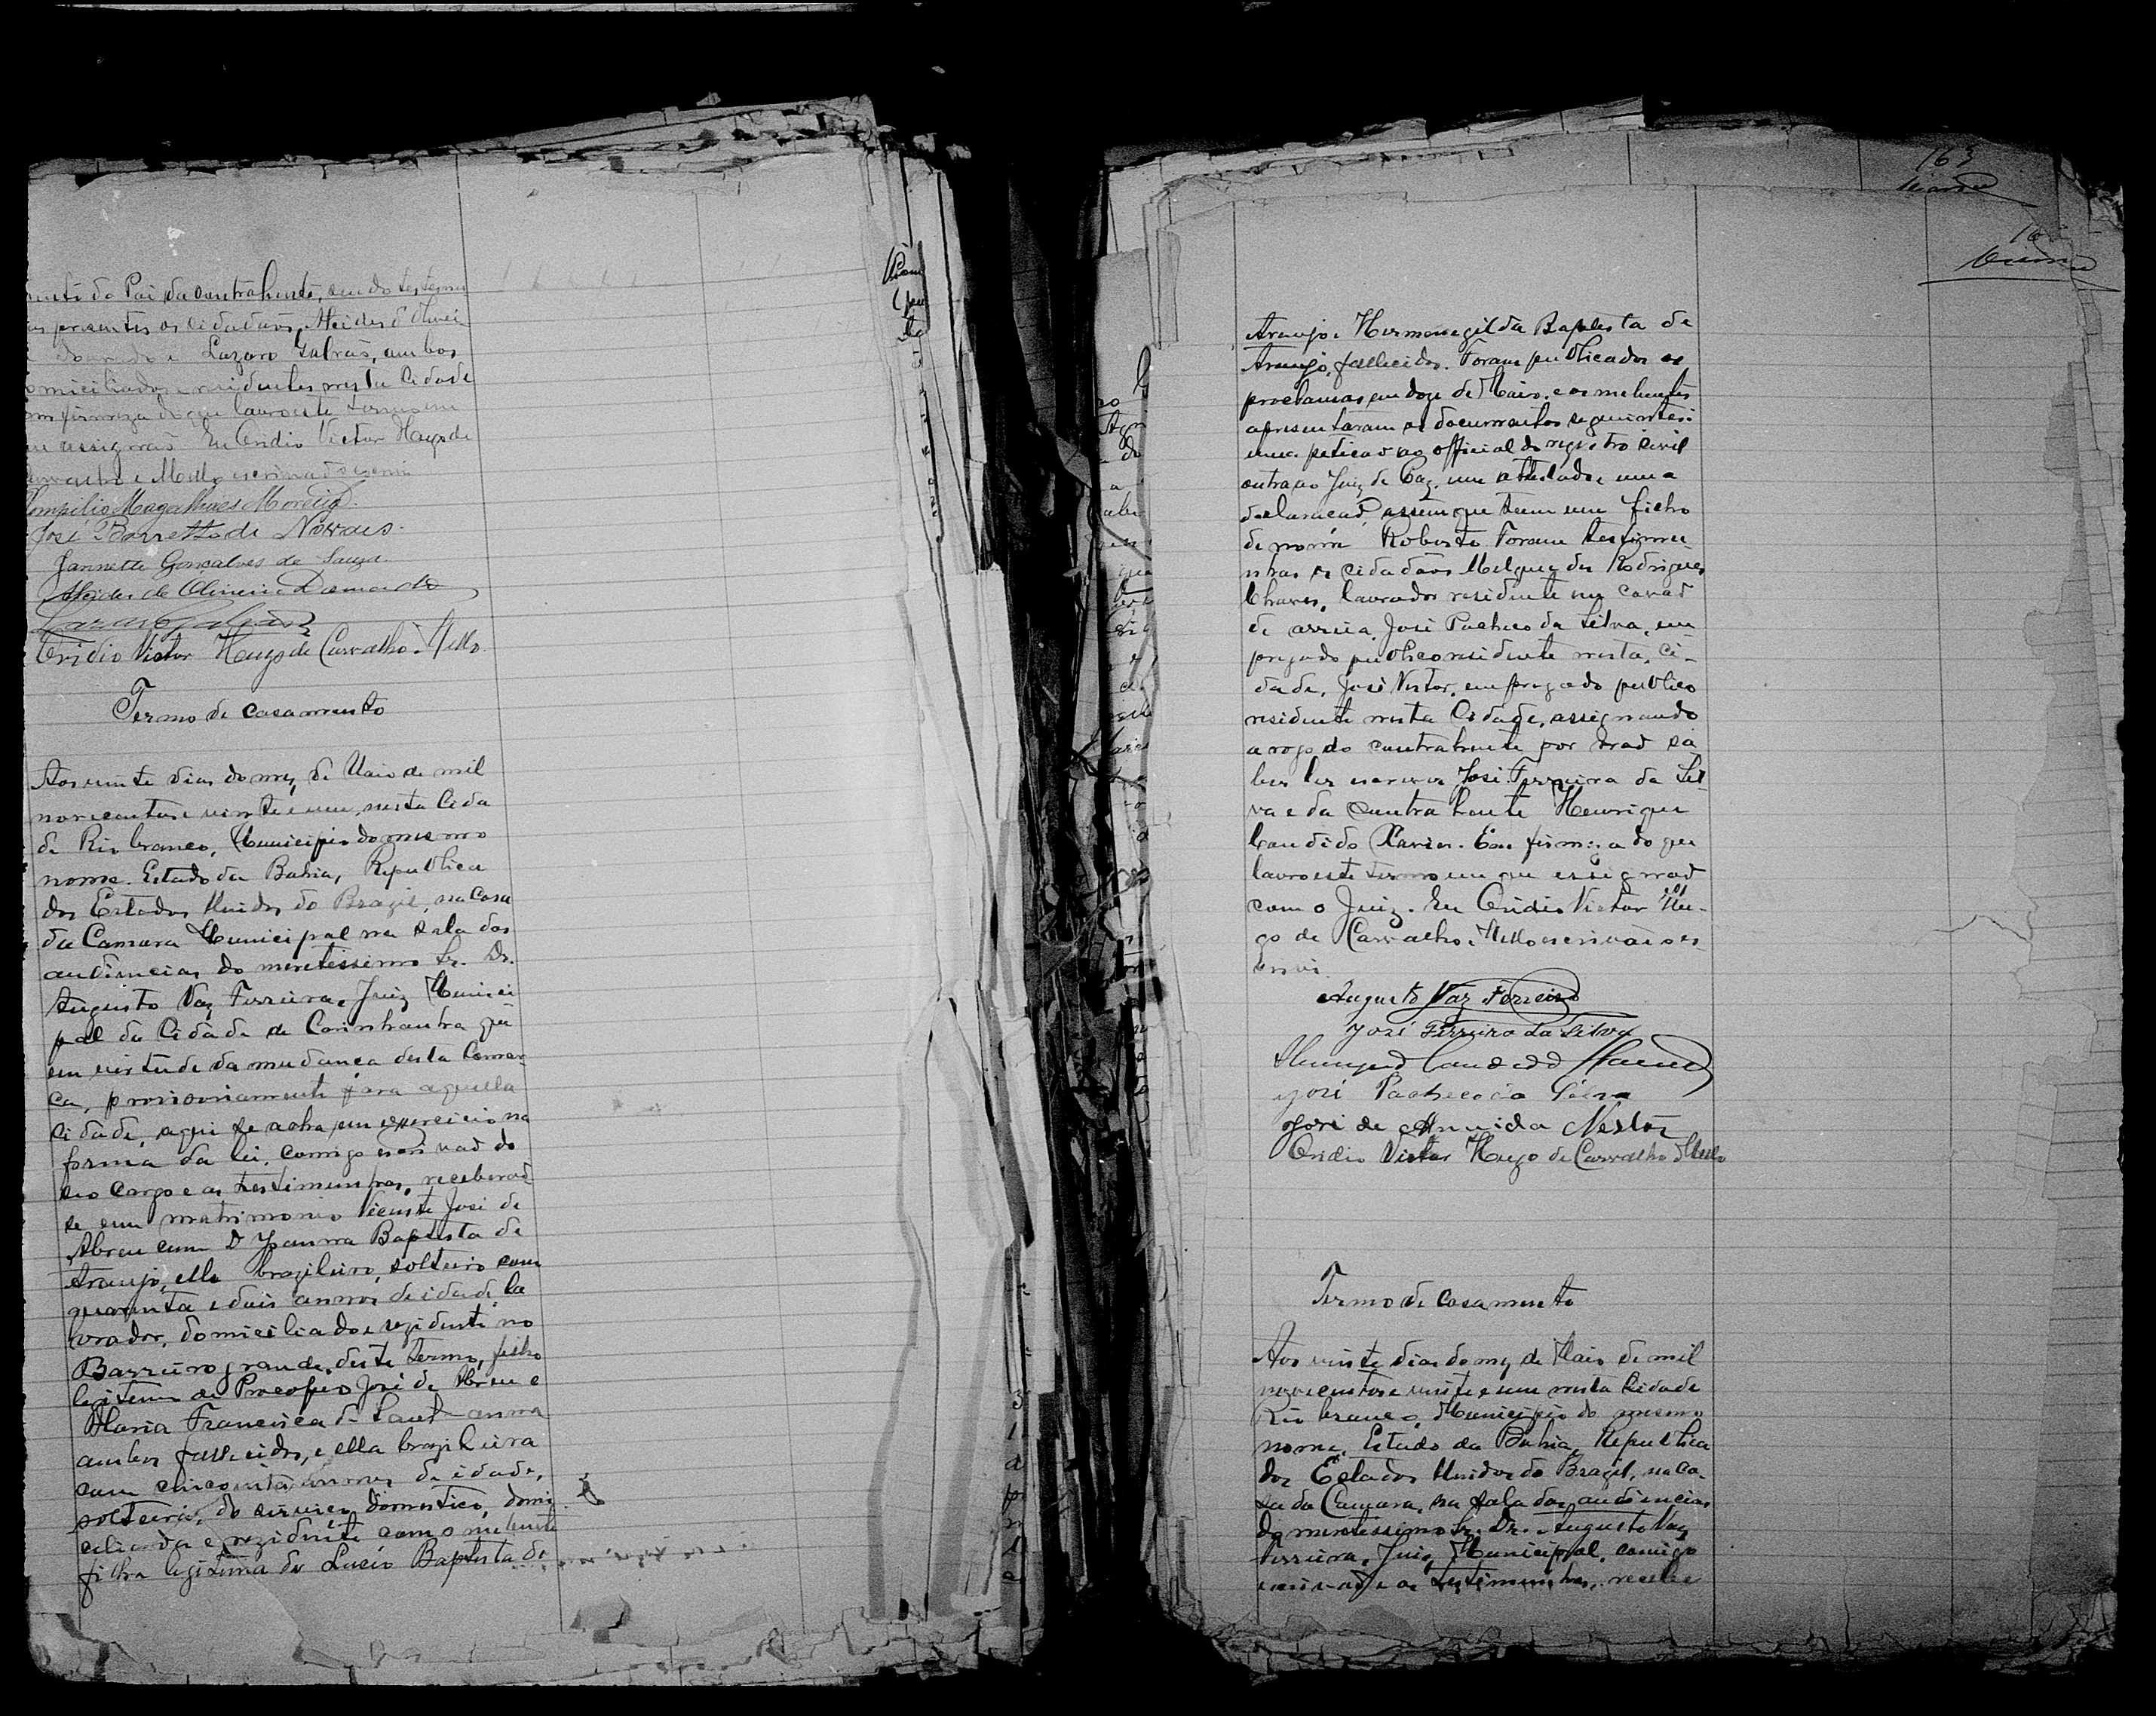 do Pai da contrahente, sendo testemu
presentes os cidadãos, Alcides d'Olivei
Dourado e Lazaro Galvão, ambos
domiciliados e residentes nesta Cidade
firmeza do que lavro este termo em
assignão. Eu Ovidio Victor Hugo de
Carvalho e Mello escrivão o escrevi
Pompilio Magalhães Moreira.
José Barretto de Novaes.
Jannette Gonçalves de Souza.
Alcides de Oliveira Dourado
Lazaro Galvão
Ovidio Victor Hugo de Carvalho e Mello
Termo de casamento
Aos vinte dias do mez de Maio de mil
novecentos e vinte e um, nesta Cida
de Rio branco, Municipio do mesmo
nome. Estado da Bahia, Republica
dos Estados Unidos do Brazil, na Casa
da Camara Municipal na sala das
audiencias do meretissimo Sr. Dr.
Augusto Vaz Ferreira, Juiz Munici
pal da Cidade de Carinhanha que
em virtude da mudança desta Comar-
ca, provisoriamente para aquella
Cidade, aqui se acha em exercicio na
forma da lei, comigo escrivão do
seo cargo e as testimunhas, receberão
se em matrimonio Vicente José de
Abreu com D. Joanna Baptista de
Araujo, elle brazileiro, solteiro com
quarenta e dois annos de idade, la
vrador, domiciliado e rezidente no
Barreiro grande, deste termo, filho
legitimo de Procopio José de Abreu e
Maria Francisca de Sant-anna
ambos fallecidos, e ella brazileira
com cincoenta annos de idade,
solteira, do serviço domestico, domi
ciliada e rezidente com o nubente
filha legitima de Lucio Baptista de
163
Araujo e Hermenegilda Baptista de
Araujo, fallecidos. Foram publicados os
proclamas em doze de Maio, e os nubentes
apresentaram os documentos seguintes:
uma petição ao official do registro civil
outra ao Juiz de Paz, um attestado e uma
declaração, assim que tem um filho
de nome Roberto. Foram testimu-
nhas os cidadãos Melquiades Rodrigues
Chaves, lavrador residente em
de arriia, José Pacheco da Silva, em
pregado publico residente nesta, Ci-
dade, José Nestor, empregado publico
residente nesta Cidade, assignando
a rogo do contrahente por não sa
ber ler escrever José Ferreira da Sil
va e da contrahente Henrique
Candido Xavier. Em firmeza do que
lavro este termo em que assignão
com o Juiz. Eu Ovidio Victor Hu-
go de Carvalho e Mello escrivão o es-
crevi.
Augusto Vaz Ferreira
José Ferreira da Silva
Henrique Candido Xavier
José Pacheco da Silva
José de Almeida Nestor
Ovidio Victor Hugo de Carvalho e Mello
Termo de casamento
Aos vinte dias do mez de Maio de mil
novecentos e vinte e um nesta Cidade
Rio branco, Municipio do mesmo
nome, Estado da Bahia, Republica
dos Estados Unidos do Brazil, na Ca-
sa da Camara, na sala das audiencias
do meretissimo Sr. Dr. Augusto Vaz
Ferreira, Juiz Municipal, comigo
escrivão e as testimunhas, recebe